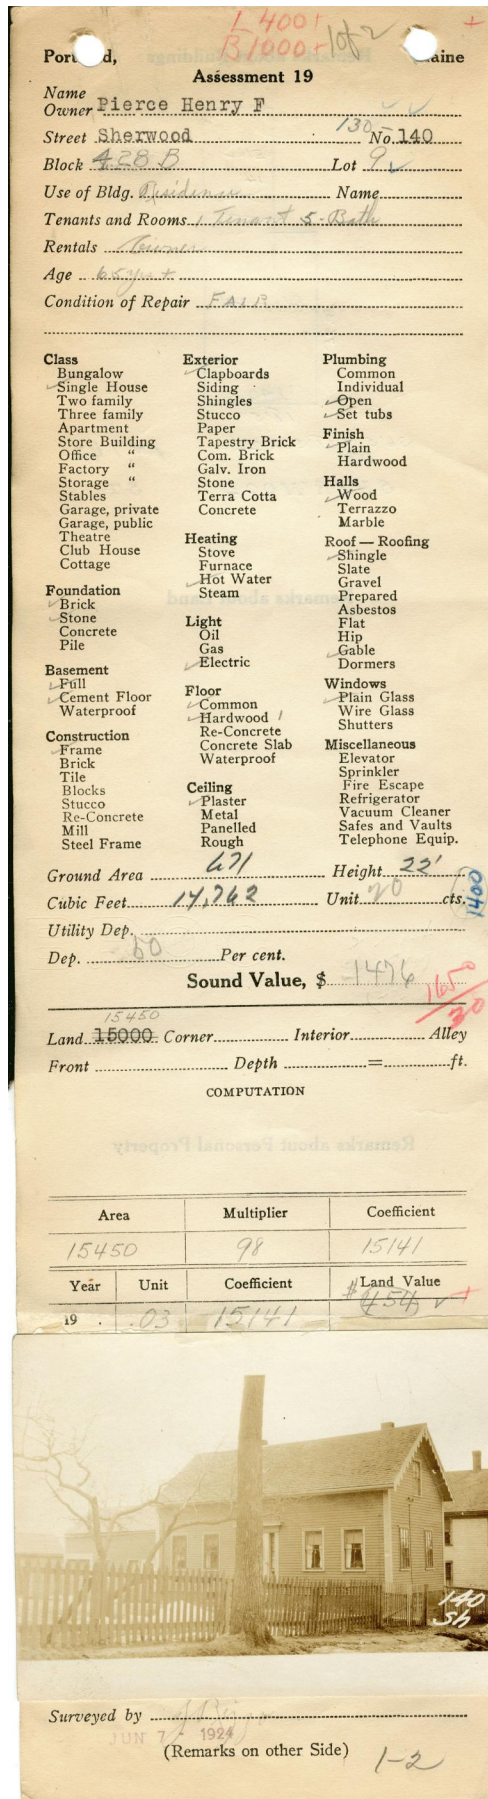 L 400+
B 1000- 1 of 2
+
Portland, Maine
Assessment 19
Name
Owner Pierce Henry F
130-
Street Sherwood No. 140
Block 428 B Lot 9
Use of Bldg. Residence Name
Tenants and Rooms 1 Tenant 5-Bath
Rentals Owner
Age 65 yrs +
Condition of Repair FAIR
Class
Bungalow
Single House
Two family
Three family
Apartment
Store Building
Office "
Factory "
Storage "
Stables
Garage, private
Garage, public
Theatre
Club House
Cottage
Foundation
Brick
Stone
Concrete
Pile
Basement
Full
Cement Floor
Waterproof
Construction
Frame
Brick
Tile
Blocks
Stucco
Re-Concrete
Mill
Steel Frame
Exterior
Clapboards
Siding
Shingles
Stucco
Paper
Tapestry Brick
Com. Brick
Galv. Iron
Stone
Terra Cotta
Concrete
Heating
Stove
Furnace
Hot Water
Steam
Light
Oil
Gas
Electric
Floor
Common
Hardwood 1
Re-Concrete
Concrete Slab
Waterproof
Ceiling
Plaster
Metal
Panelled
Rough
Plumbing
Common
Individual
Open
Set tubs
Finish
Plain
Hardwood
Halls
Wood
Terrazzo
Marble
Roof — Roofing
Shingle
Slate
Gravel
Prepared
Asbestos
Flat
Hip
Gable
Dormers
Windows
Plain Glass
Wire Glass
Shutters
Miscellaneous
Elevator
Sprinkler
Fire Escape
Refrigerator
Vacuum Cleaner
Safes and Vaults
Telephone Equip.
Ground Area 671 Height 22'
Cubic Feet 14,762 Unit 20 cts.
1400
Utility Dep.
Dep. 50 Per cent.
Sound Value, $ 1476
1650
20
15450
Land 15000 Corner Interior Alley
Front Depth = ft.
COMPUTATION
Area Multiplier Coefficient
15450 98 15141
Year Unit Coefficient Land Value
19 .03 15141 $454 +
140
Sh
Surveyed by
JUN 7 1924
(Remarks on other Side) 1-2